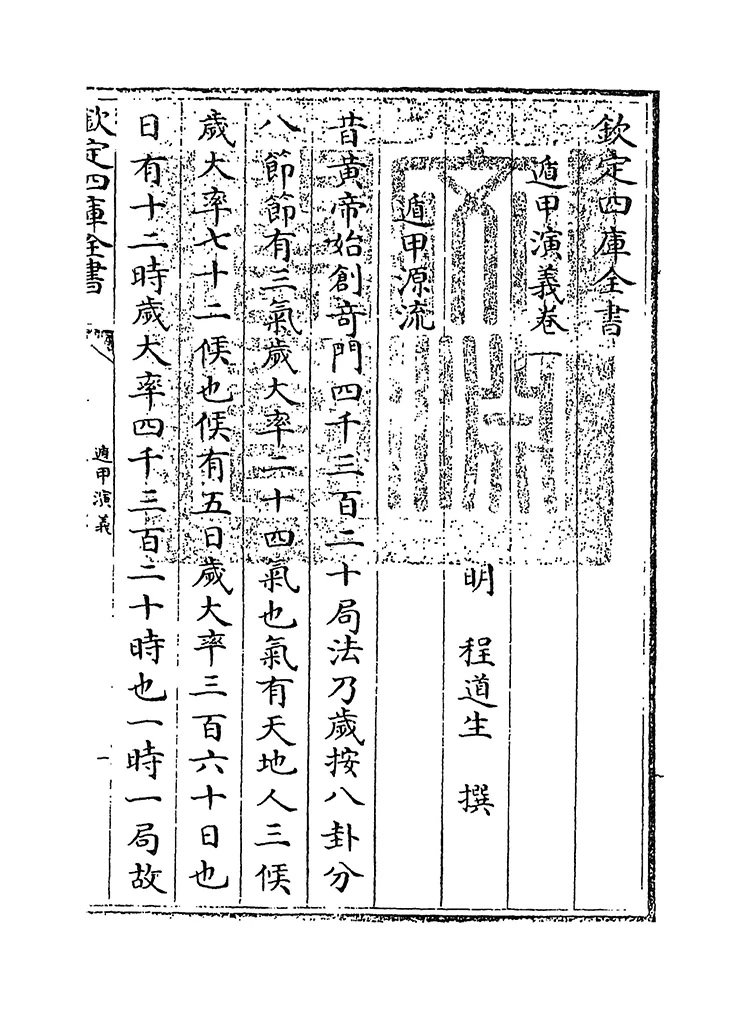 欽定四庫全書
遁甲演義卷一
明　程道生　撰
遁甲源流
昔黃帝始創竒門四千三百二十局法乃歲按八卦分
八節節有三氣歲大率二十四氣也氣有天地人三候
歲大率七十二候也候有五日歲大率三百六十日也
日有十二時歲大率四千三百二十時也一時一局故
欽定四庫全書
遁甲演義
一